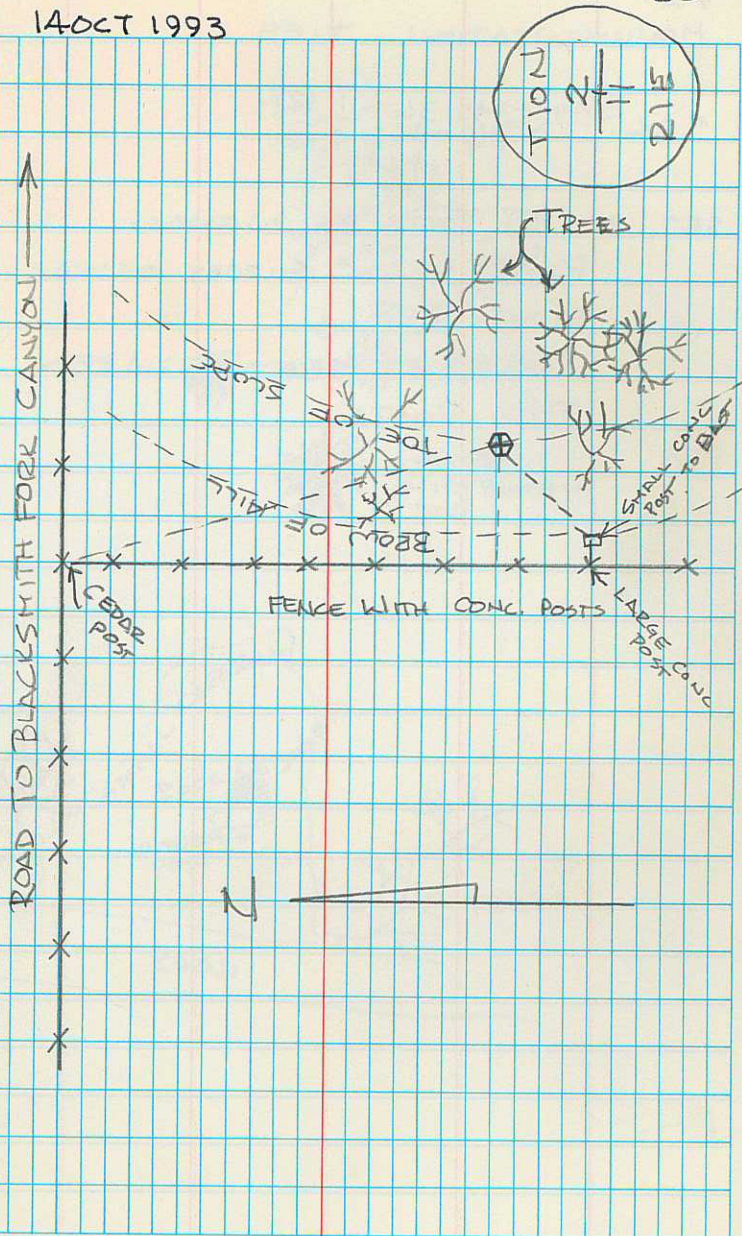 14 OCT 1993
T10N
2
11
R1E
TREES
ROAD TO BLACKSMITH FORK CANYON
TOE OF SLOPE
BROW OF HILL
SMALL CONC
POST TO EAST
CEDAR
POST
FENCE WITH CONC. POSTS
LARGE CONC
POST
N